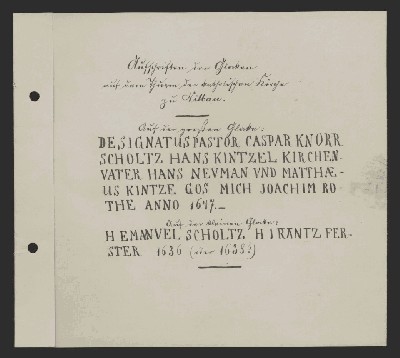 Aufschriften der Glocken
auf dem Thurm der katholischen Kirche
zu Milkau.
Auf der großen Glocke:
DESIGNATUS PASTOR CASPAR KNORR
SCHOLTZ HANS KINTZEL KIRCHEN-
VATER HANS NEVMAN VND MATTHÆ-
US KINTZE GOS MICH JOACHIM RO
THE ANNO 1647.
Auf der kleinen Glocke:
H EMANVEL SCHOLTZ H IRANTZ FER-
STER 1636 (oder 1638?)